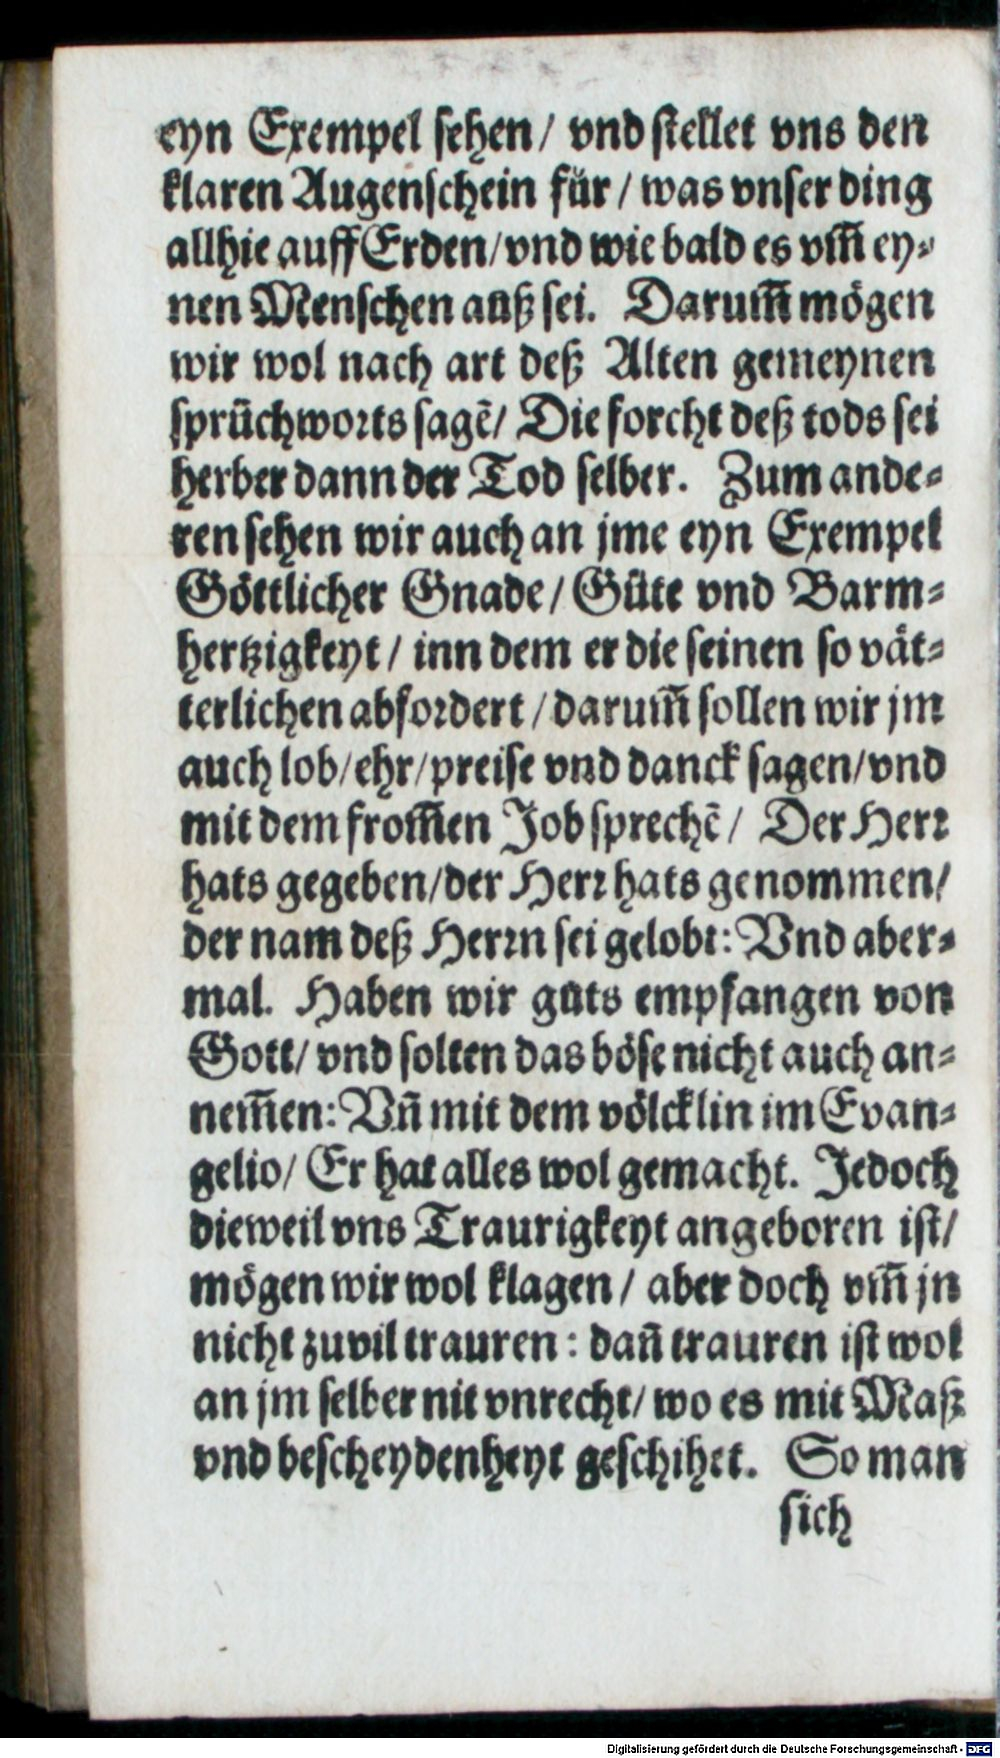 eyn Exempel sehen/ vnd stellet vns den
klaren Augenschein für / was vnser ding
allhie auff Erden/vnd wie bald es vm̃ ey⸗
nen Menschen auß sei. Darum̃ mögen
wir wol nach art deß Alten gemeynen
sprüchworts sagẽ/ Die forcht deß tods sei
herber dann der Tod selber. Zum ande⸗
ren sehen wir auch an jme eyn Exempel
Göttlicher Gnade/ Güte vnd Barm⸗
hertzigkeyt/ inn dem er die seinen so vät⸗
terlichen abfordert / darum̃ sollen wir jm
auch lob/ehr/preise vnd danck sagen/vnd
mit dem from̃en Job sprechẽ/ Der Herr
hats gegeben/der Herr hats genommen/
der nam deß Herrn sei gelobt: Vnd aber⸗
mal. Haben wir guts empfangen von
Gott/ vnd solten das böse nicht auch an⸗
nem̃en: Vñ mit dem völcklin im Evan⸗
gelio/ Er hat alles wol gemacht. Jedoch
dieweil vns Traurigkeyt angeboren ist/
mögen wir wol klagen / aber doch vm̃ jn
nicht zuvil trauren : dañ trauren ist wol
an jm selber nit vnrecht/ wo es mit Maß
vnd bescheydenheyt geschihet. So man
sich
Digitalisierung gefördert durch die Deutsche Forschungsgemeinschaft - DFG